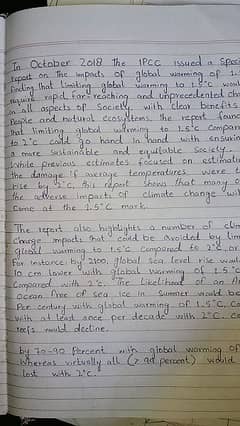 In October 2018 the IPCC issued a Spec
report on the impacts of global warming of 1.
finding that limiting global warming to 1.5°C woul
require rapid, far-reaching and unprecedented ch
in all aspects of Society, with clear benefits
people and natural ecosystems, the report foun
that limiting global warming to 1.5°C Compar
to 2°C could go hand in hand with ensurin
a more sustainable and equitable society.
While previous estimates focused on estimati
the damage if average temperatures were t
rise by 2°C, this report shows that many o
the adverse impacts of climate change wil
Come at the 1.5°C mark.
The report also highlights a number of clim
change impacts that could be avoided by lim
global warming to 1.5°C compared to 2°C, or
For instance by 2100, global sea level rise woul
10 cm lower with global warming of 1.5°C
Compared with 2°C. The likelihood of an A
ocean free of sea ice in summer would be
Per century with global warming of 1.5°C, Co
with at least once per decade with 2°C. Co
reefs would decline.
by 70-90 Percent with global warming of
Whereas virtually all (> 99 percent) would
lost with 2°C.